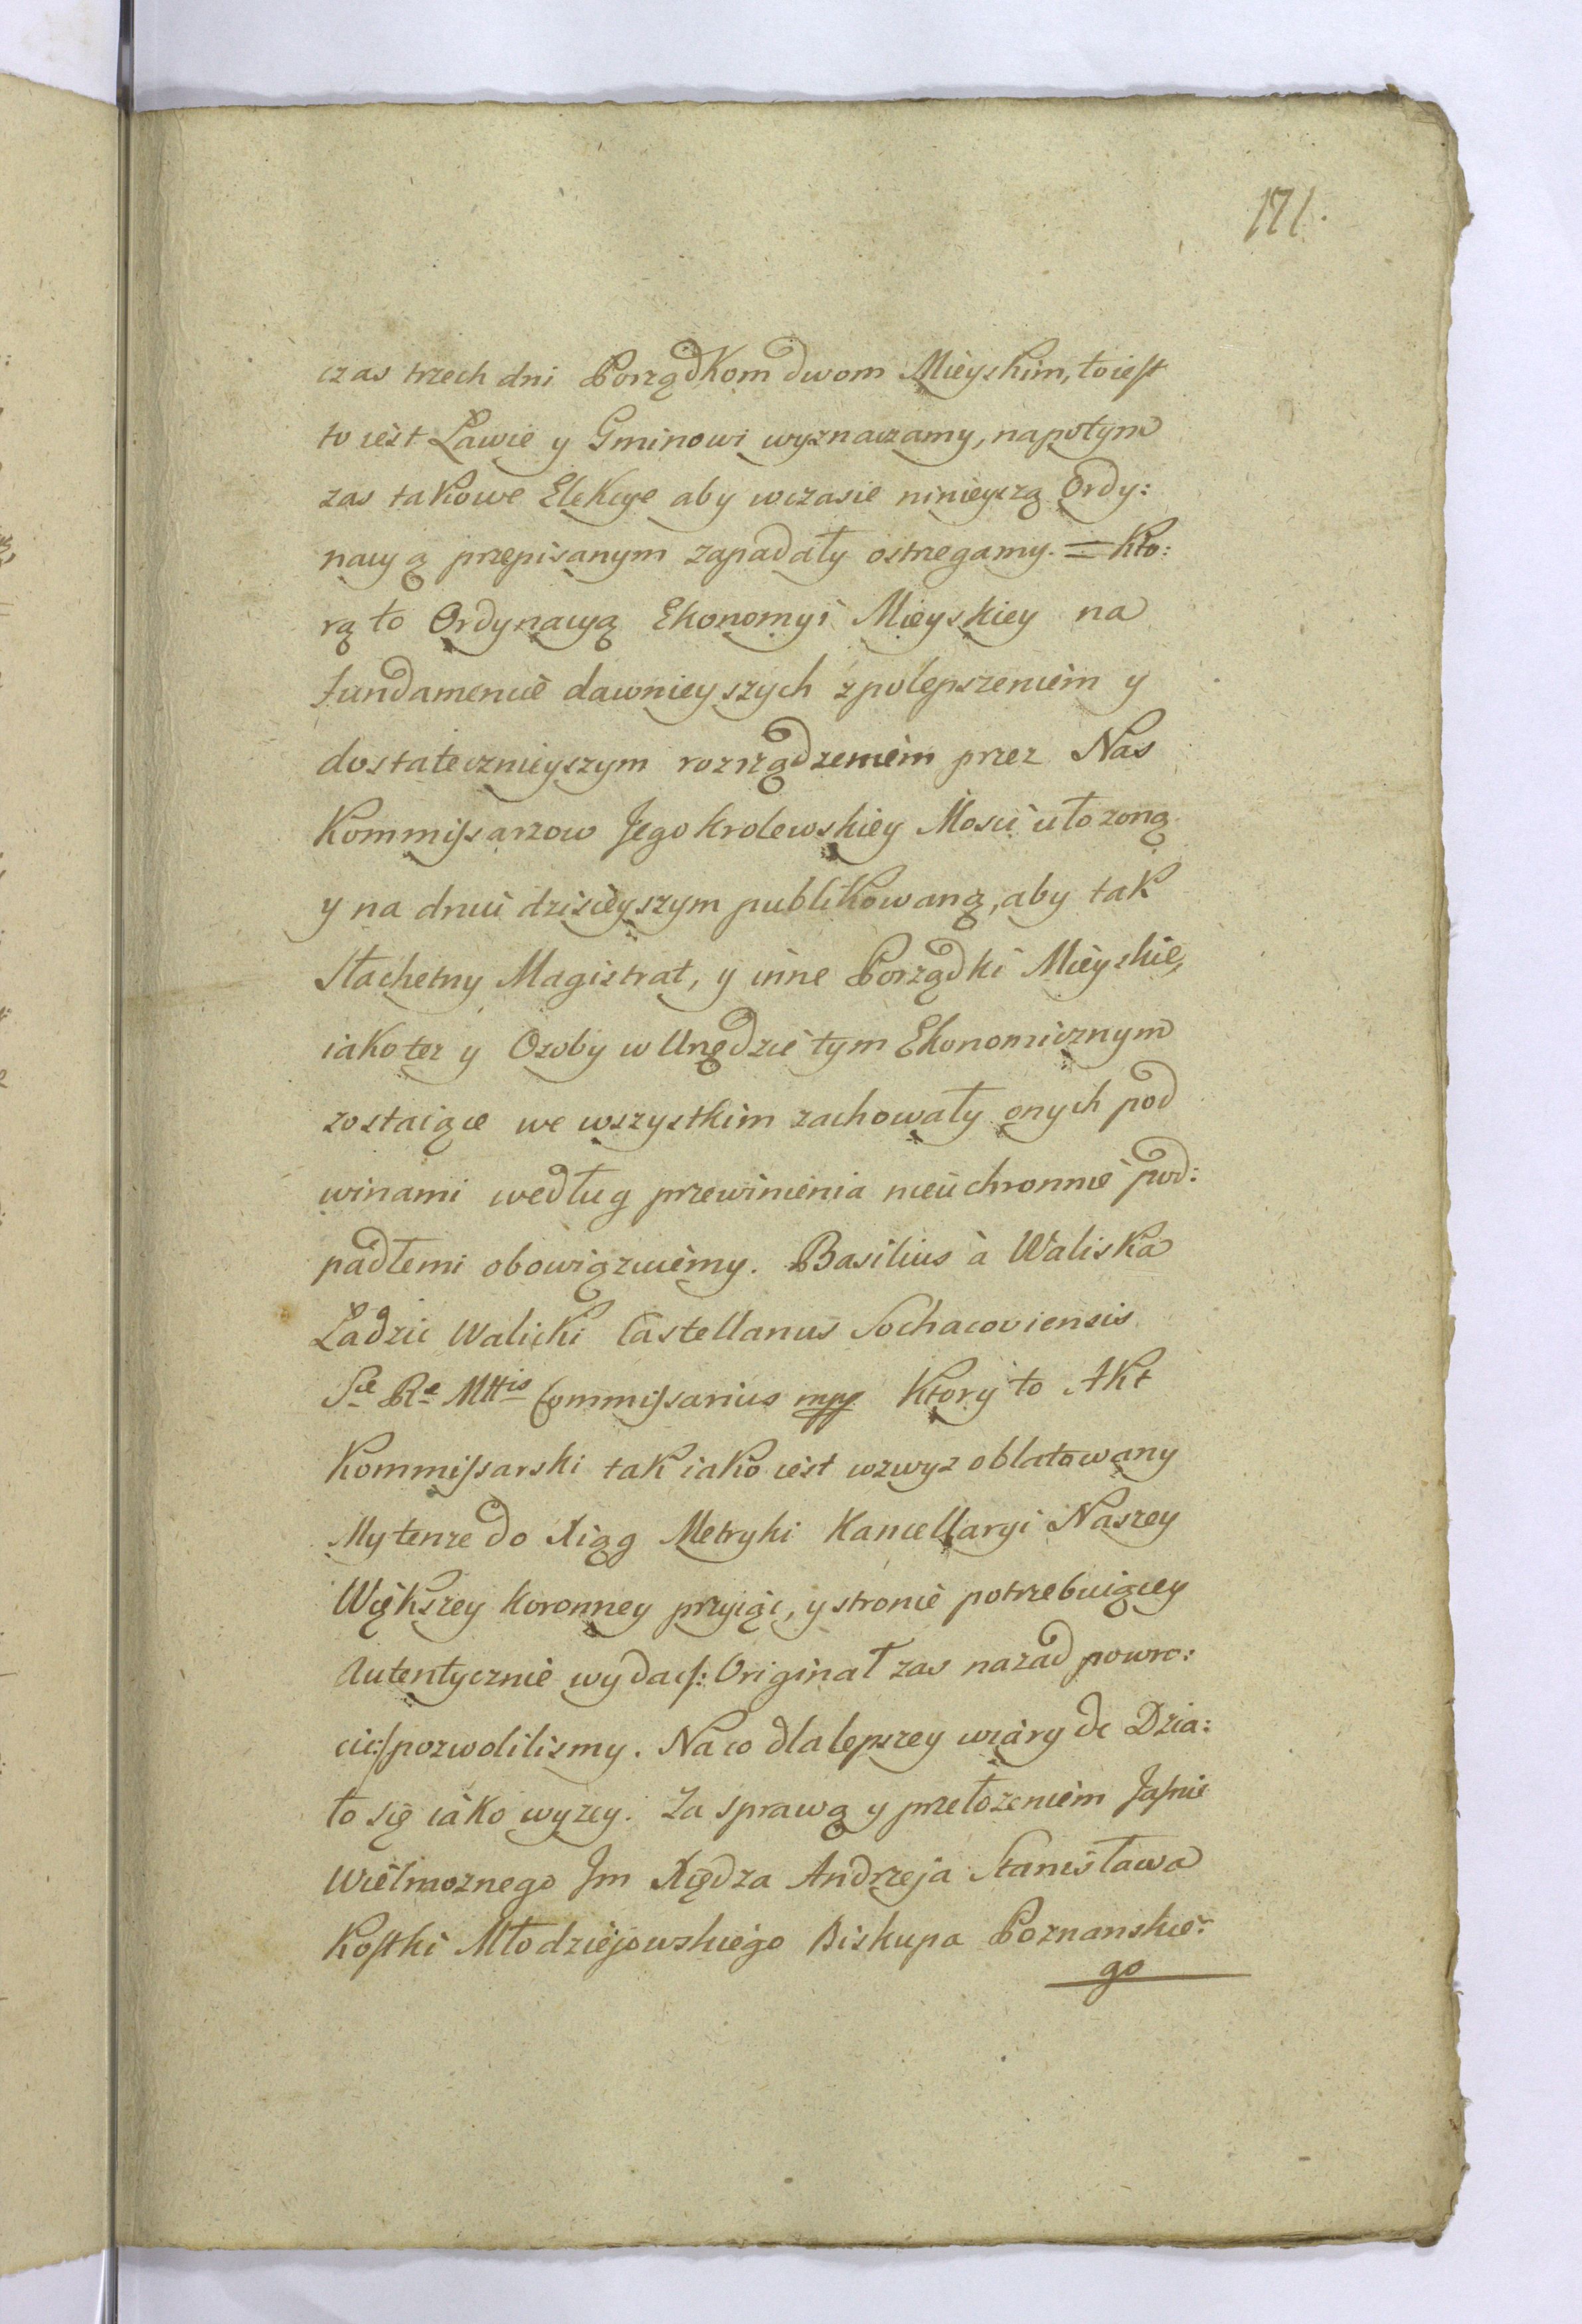 171.
czas trzech dni Porządkom dwom Mieyskim, to iest
to iest Ławie y Gminowi wyznaczamy, napotym
zas takowe Elekcye aby w czasie ninieyszą Ordy:
nacyą przepisanym zapadały ostrzegamy. = Kto:
rą to Ordynacyą Ekonomyi Mieyskiey na
fundamencie dawnieyszych z polepszeniem y
dostatecznieyszym rozrządzeniem przez Nas
Kommissarzow Jego Krolewskiey Mosci ułozoną
y na dniu dzisieyszym publikowaną, aby tak
Słachetny Magistrat, y inne Porządki Mieyskie,
iako tez y Osoby w Urzędzie tym Ekonomicznym
zostaiące we wszystkim zachowały onych pod
winami według przewinienia nieuchronnie pod:
padłemi obowiązuiemy. Basilius à Waliska
Ładzic Walicki Castellanus Sochacoviensis
Sæ Ræ Mttis Commissarius mpp Ktory to Akt
Kommissarski tak iako iest wzwyz oblatowany
My tenze do Xiąg Metryki Kancellaryi Naszey
Większey Koronney przyiąć, y stronie potrzebuiącey
Autentycznie wydać/: Originał zas nazad powro:
cić:/ pozwolilismy. Na co dla lepszey wiary dc Dzia:
ło się iako wyzey. Za sprawą y przełozeniem Jasnie
Wielmoznego Jm Xiędza Andrzeja Stanisława
Kostki Młodziejowskiego Biskupa Poznanskie:
go